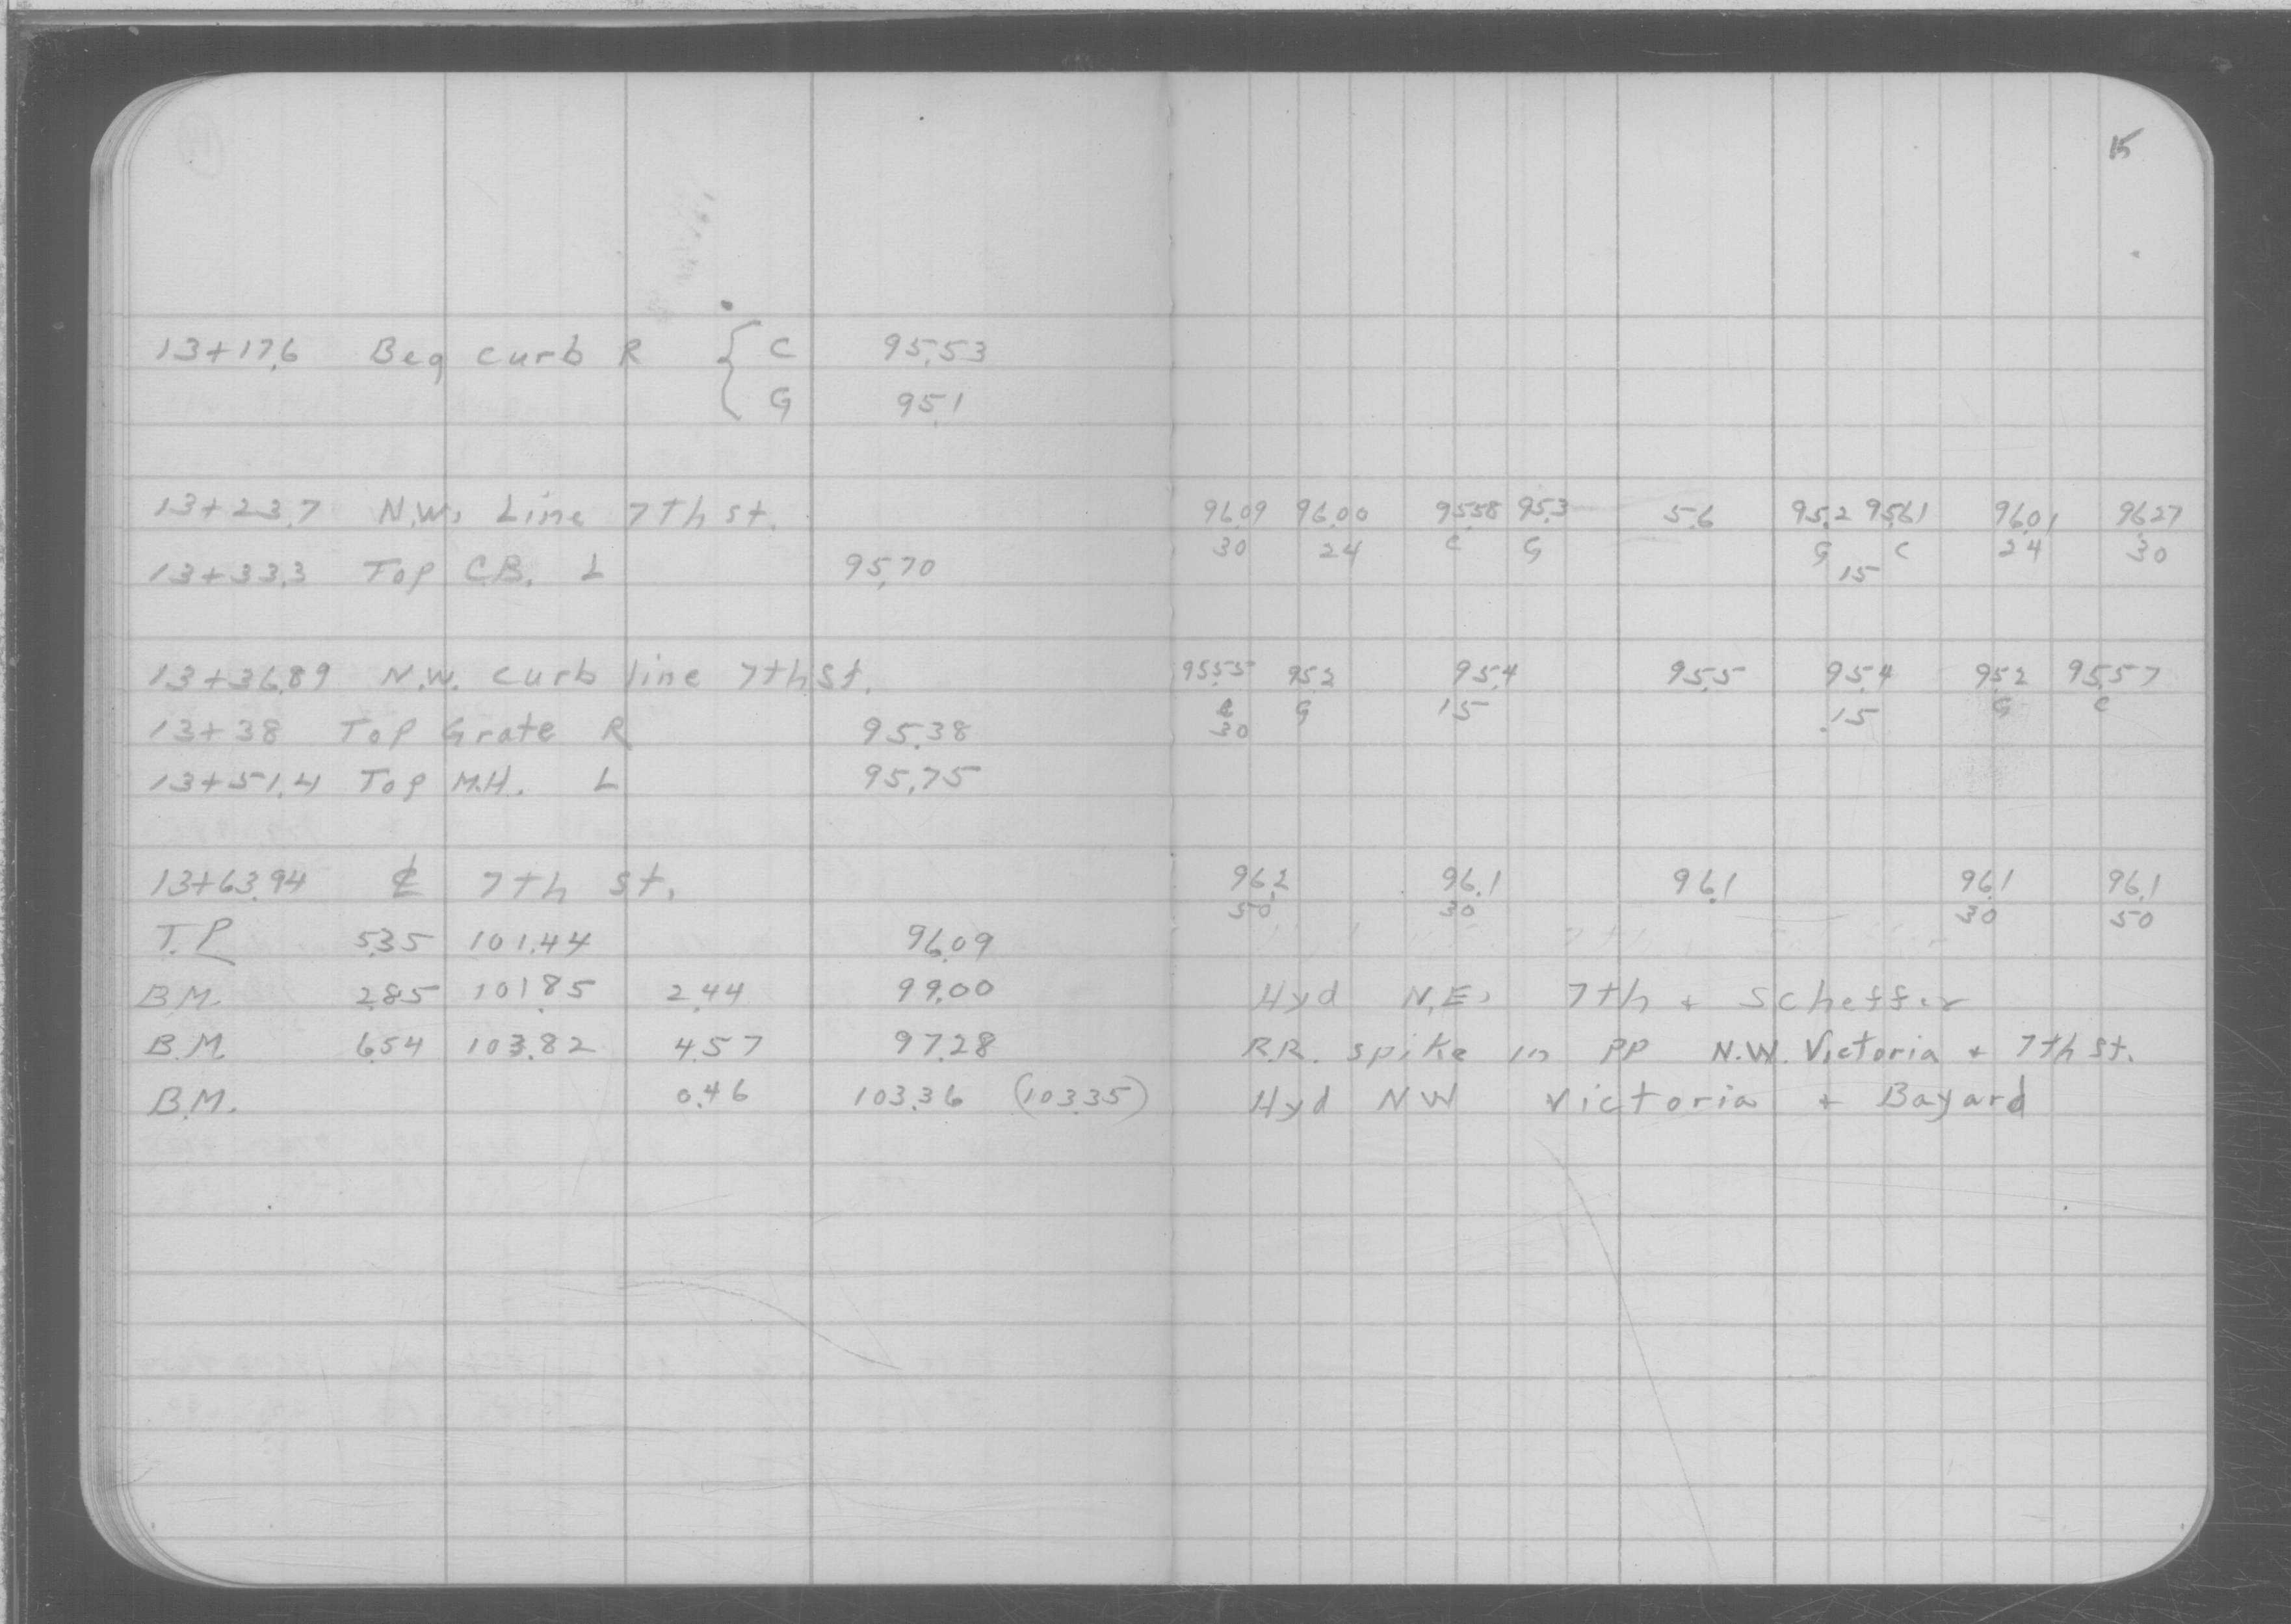 15
13+17.6 Beg curb R { C 95.53
G 95.1
13+23.7 N.W. Line 7th st. 96.09 96.00 95.58 95.3 5.6 95.2 95.61 96.01 96.27
30 24 C G G C 24 30
13+33.3 Top C.B. L 95.70 15
13+36.89 N.W. curb line 7th St. 95.55 95.2 95.4 95.5 95.4 95.2 95.57
C G 15 15 G C
13+38 Top Grate R 95.38 30
13+51.4 Top M.H. L 95.75
13+63.94 ℄ 7th st. 96.2 96.1 96.1 96.1 96.1
50 30 30 50
T.P. 5.35 101.44 96.09
B.M. 2.85 101.85 2.44 99.00 Hyd N.E. 7th + Scheffer
B.M. 6.54 103.82 4.57 97.28 R.R. spike in PP N.W. Victoria + 7th St.
B.M. 0.46 103.36 (103.35) Hyd NW Victoria + Bayard